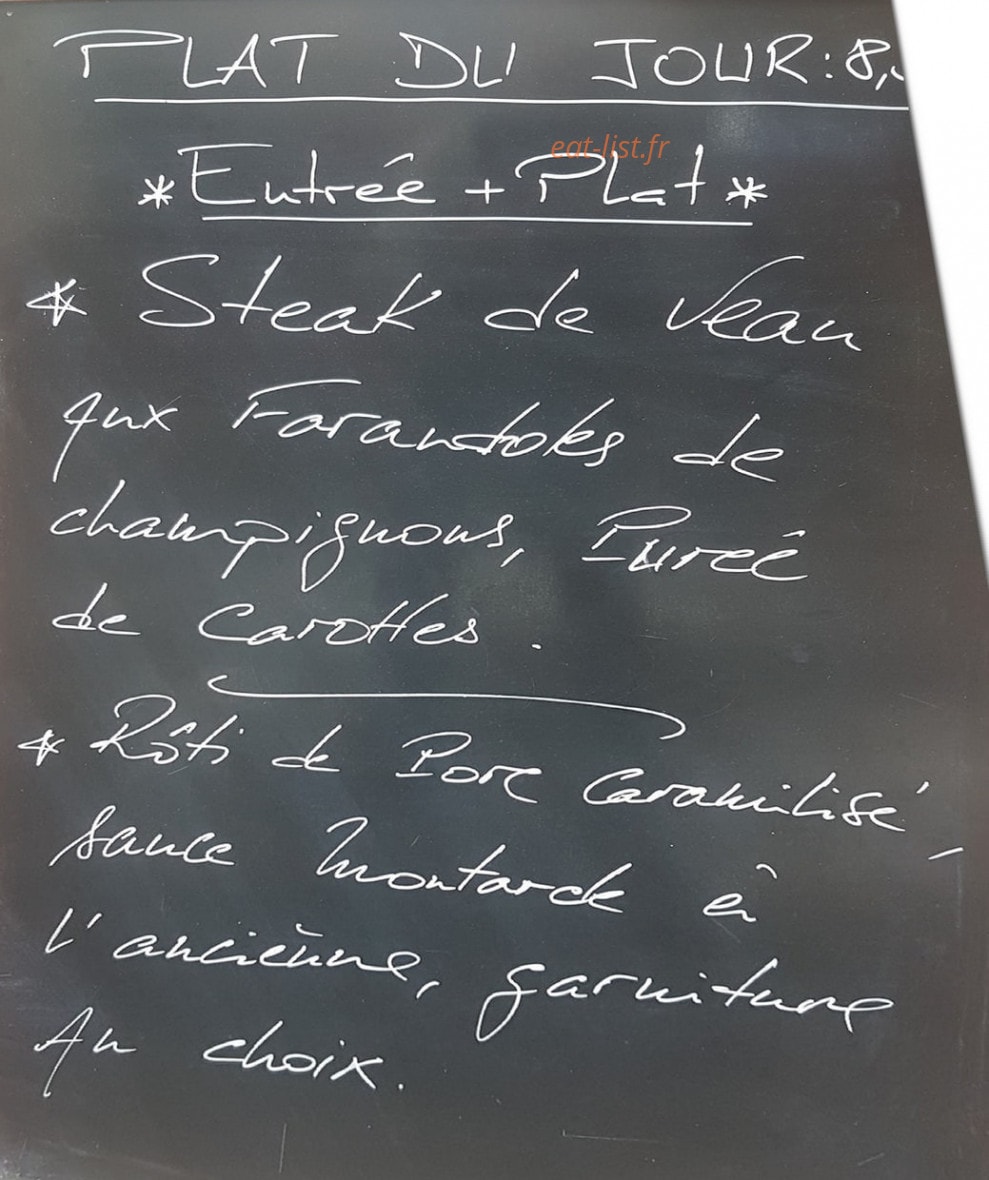 PLAT DU JOUR: 8,
eat-list.fr
* Entrée + Plat *
* Steak de Veau
Aux Farandoles de
champignons, Purée
de Carottes.
* Rôti de Porc Caramilisé,
sauce Moutarde à
l'ancienne, garniture
Au choix.